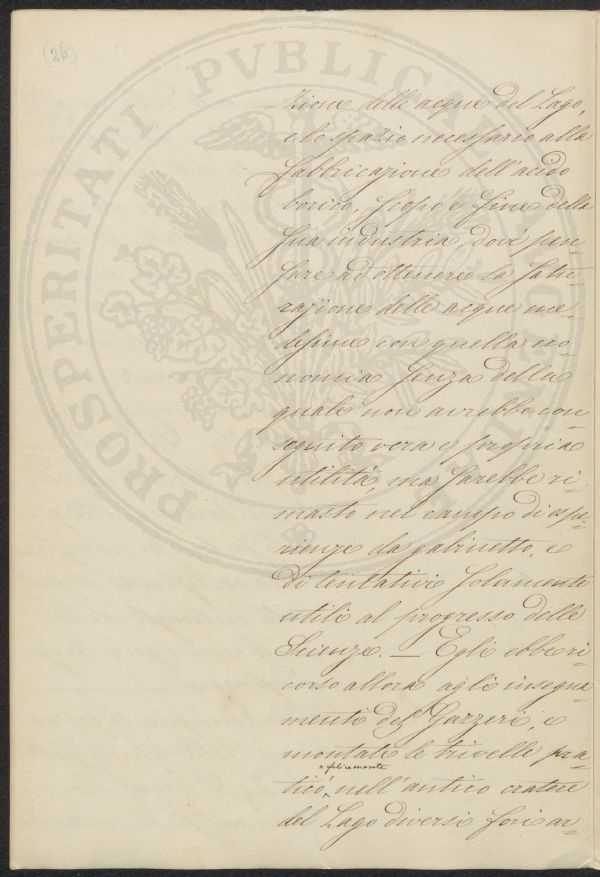 (26)
=zione delle acque del Lago,
e lo spazio necessario alla
fabbricazione dell'acido
borico, scopo e fine della
sua industria, dové pen=
sare ad ottenere la satu=
razione delle acque me=
desime con quella eco=
nomia senza della
quale non avrebbe con=
seguito vera e propria
utilità, ma sarebbe ri=
masto nel campo di espe=
rienze da gabinetto, e
di tentativi solamente
utili al progresso delle
Scienze. — Egli ebbe ri=
corso allora agli insegna
menti del Gazzeri, e
montate le trivelle pra=
ticò, ^felicemente nell'antico cratere
del Lago diversi fori ar=
PROSPERITATI PVBLICAE